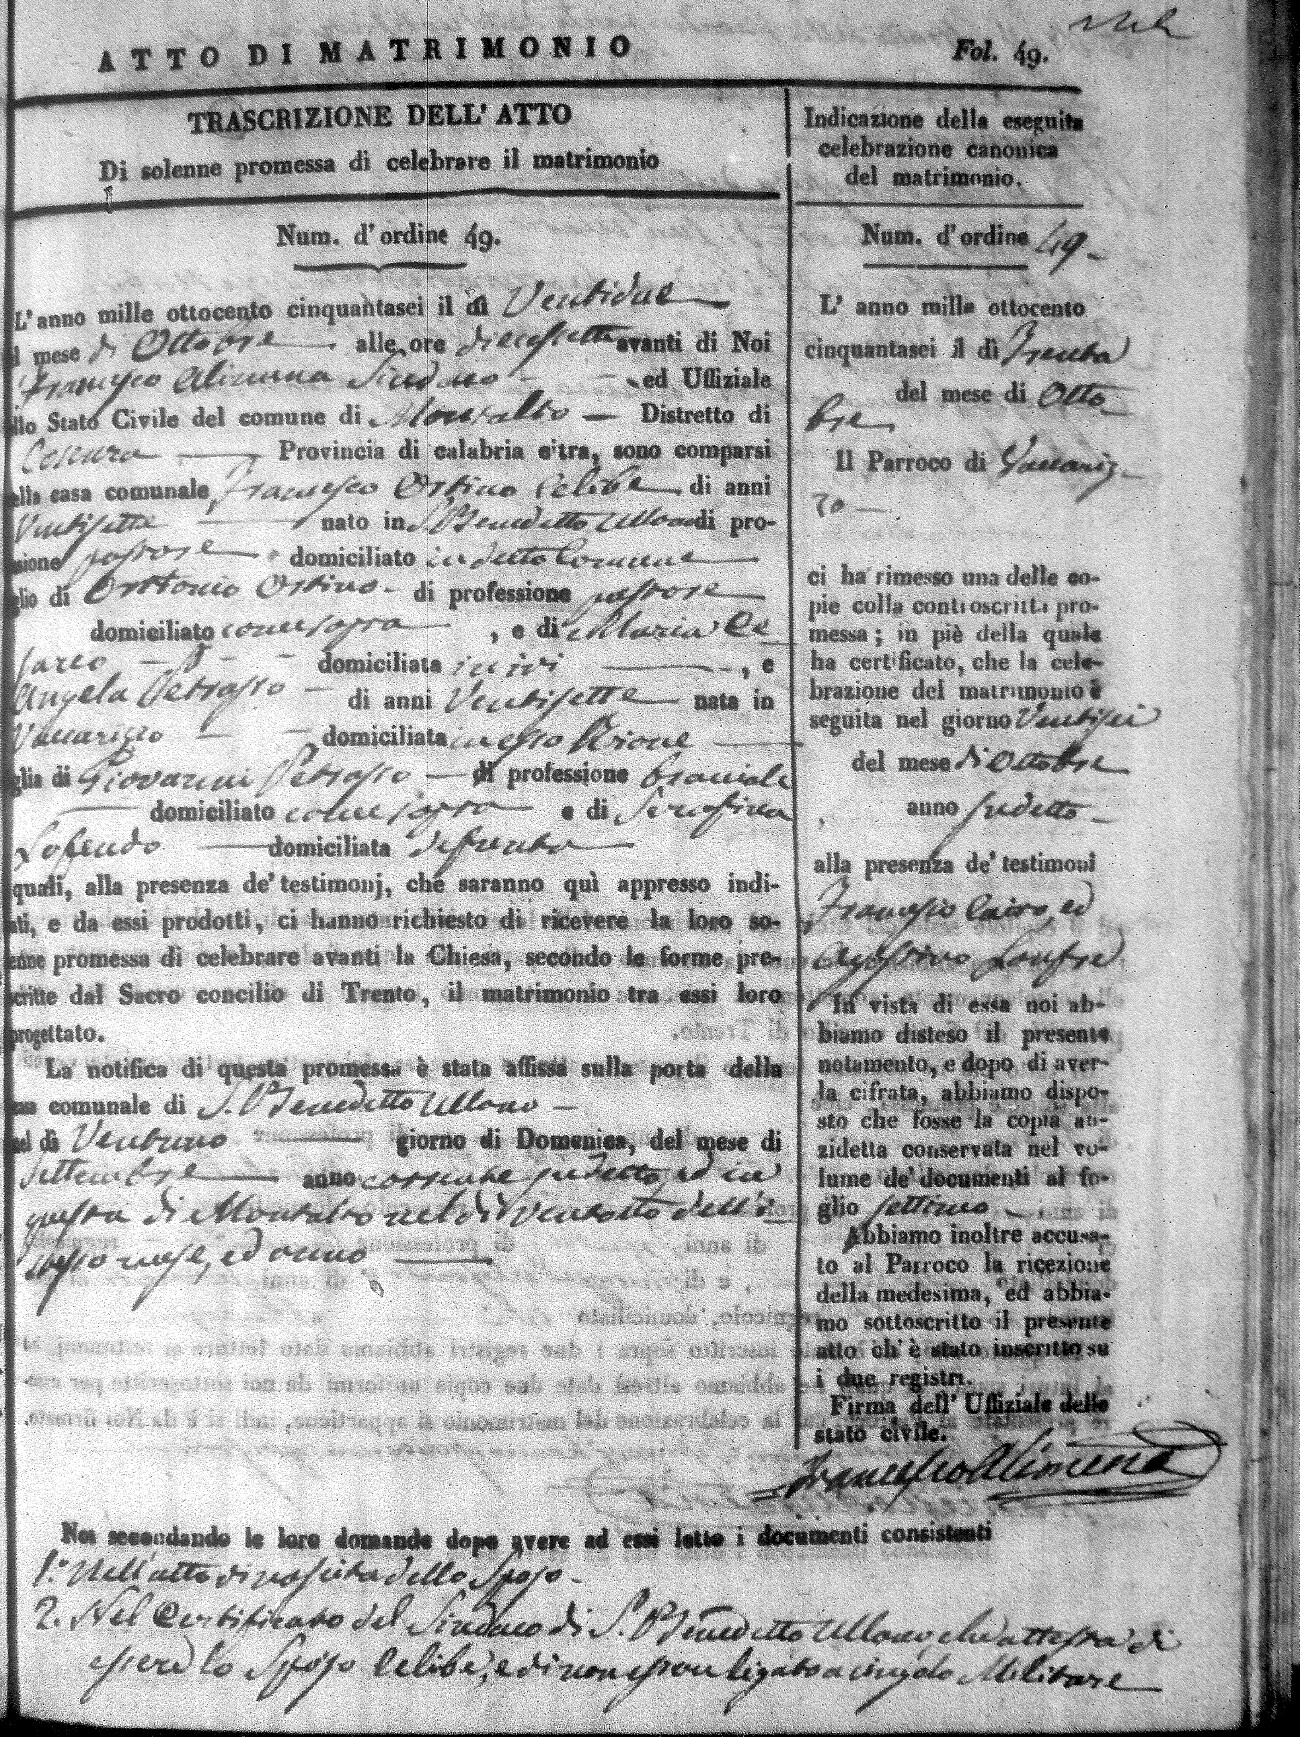 ATTO DI MATRIMONIO
Fol. 49.
TRASCRIZIONE DELL' ATTO
Di solenne promessa di celebrare il matrimonio
Num. d' ordine 49.
L' anno mille ottocento cinquantasei il dì Ventidue
l mese di Ottobre alle ore diecisette avanti di Noi
Francesco Alimena Sindaco ed Uffiziale
llo Stato Civile del comune di Montalto Distretto di
Cosenza Provincia di calabria citra, sono comparsi
ella casa comunale Francesco Orsino Celibe di anni
Ventisette nato in S. Benedetto Ullano di pro-
sione pastore domiciliato in detto Comune
glio di Antonio Orsino di professione pastore
domiciliato come sopra , e di Maria
domiciliata in ivi , e
Angela Petrasso di anni Ventisette nata in
Vaccarizzo domiciliata in esso Rione
glia di Giovanni Petrasso di professione bracciale
domiciliato come sopra e di Serafina
Lofeudo domiciliata defunta
quali, alla presenza de' testimonj, che saranno quì appresso indi-
ati, e da essi prodotti, ci hanno richiesto di ricevere la loro so-
enne promessa di celebrare avanti la Chiesa, secondo le forme pre-
critte dal Sacro concilio di Trento, il matrimonio tra essi loro
progettato.
La notifica di questa promessa è stata affissa sulla porta della
asa comunale di S. Benedetto Ullano
el dì Ventuno giorno di Domenica, del mese di
Settembre anno corrente sudetto, ed in
questa di Montalto nel dì ventotto dell' i-
stesso mese, ed anno
Indicazione della eseguita
celebrazione canonica
del matrimonio.
Num. d' ordine 49
L' anno mille ottocento
cinquantasei il dì Trenta
del mese di Otto-
bre
Il Parroco di Vaccariz-
zo
ci ha rimesso una delle co-
pie colla controscritta pro-
messa; in piè della quale
ha certificato, che la cele-
brazione del matrimonio è
seguita nel giorno Ventisei
del mese di Ottobre
anno sudetto
alla presenza de' testimoni
Francesco Cairo, ed
Agostino
In vista di essa noi ab-
biamo disteso il presente
notamento, e dopo di aver-
la cifrata, abbiamo dispo-
sto che fosse la copia an-
zidetta conservata nel vo-
lume de' documenti al fo-
glio settimo
Abbiamo inoltre accusa-
to al Parroco la ricezione
della medesima, ed abbia-
mo sottoscritto il presente
atto ch' è stato inscritto su
i due registri.
Firma dell' Uffiziale dello
stato civile.
Francesco Alimena
Noi secondando le loro domande dopo avere ad essi letto i documenti consistenti
1.° Nell' atto di nascita dello Sposo
2. Nel Certificato del Sindaco di S. Benedetto Ullano, che attesta di
essere lo Sposo Celibe, e di non essere ligato a cingolo Militare